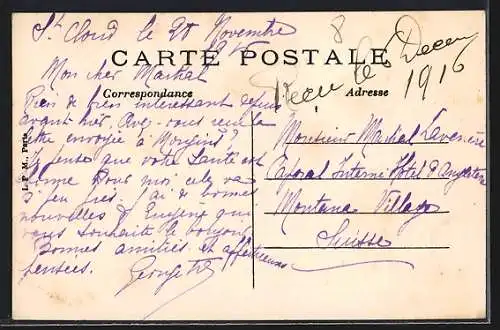 St Cloud le 28 Novembre
CARTE POSTALE
Correspondance
Adresse
Mon cher Martial
Rien de bien interessant depuis
avant hier, Avez-vous reçu la
lettre envoyée à Mougins?
Je pense que votre santé est
bonne Pour moi cela va
à peu près, j'ai de bonnes
nouvelles d'Eugène qui
vous souhaite le bonjour
Bonnes amitiés et affectueuses
pensées.
Georgette
8
Reçu le 6 Decem
1916
Monsieur Martial
Caporal Interné Hotel d'Angleterre
Montana Village
Suisse
L. F. M., Paris